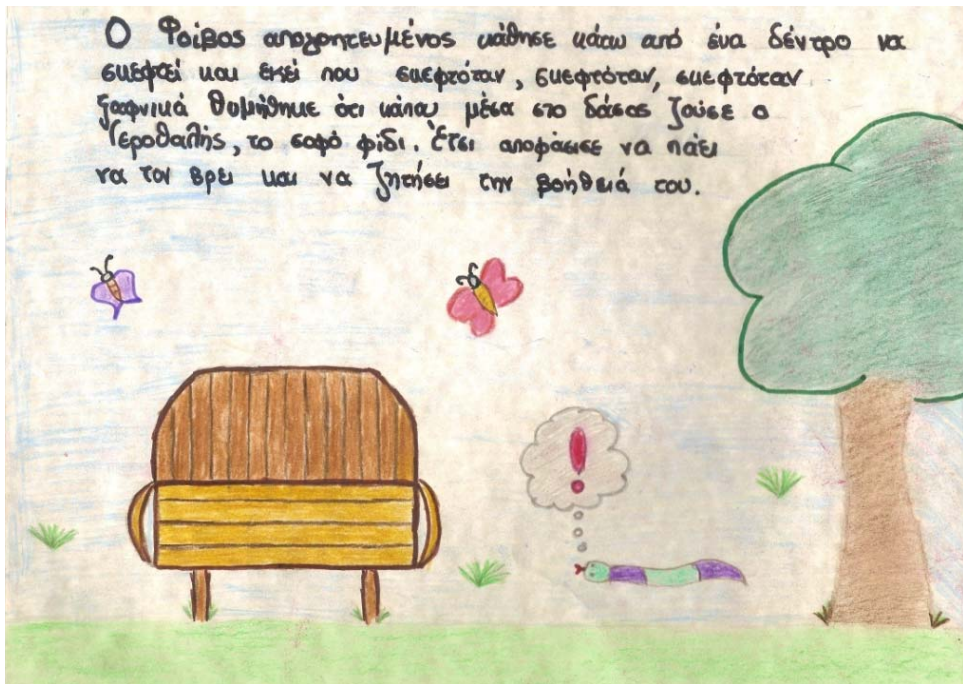 Ο Φοίβος απογοητευμένος κάθησε κάτω από ένα δέντρο να
σκεφτεί και εκεί που σκεφτόταν, σκεφτόταν, σκεφτόταν
ξαφνικά θυμήθηκε ότι κάπου μέσα στο δάσος ζούσε ο
Γεροθαλής, το σοφό φίδι. Έτσι αποφάσισε να πάει
να τον βρει και να ζητήσει την βοήθειά του.